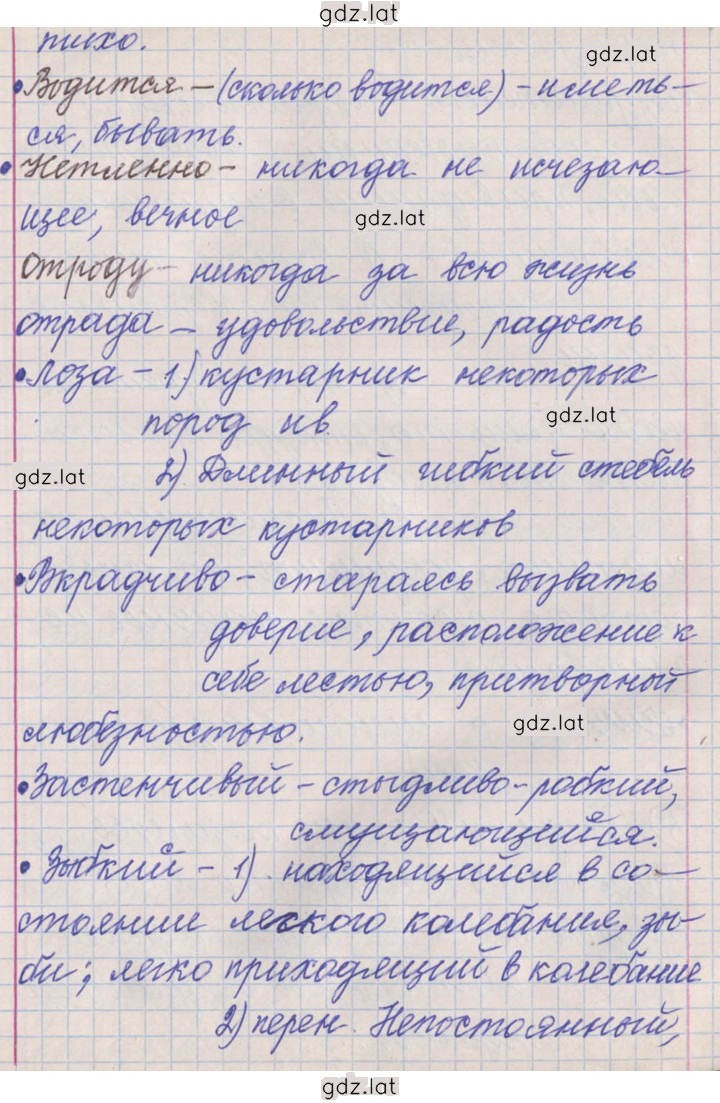 gdz.lat
тихо.
gdz.lat
• Водится – (сколько водится) – иметь-
ся, бывать.
• Нетленно – никогда не исчезаю-
щее, вечное
gdz.lat
Отроду – никогда за всю жизнь
отрада – удовольствие, радость
• Лоза – 1) кустарник некоторых
пород ив
gdz.lat
gdz.lat
2) Длинный гибкий стебель
некоторых кустарников
• Вкрадчиво – стараясь вызвать
доверие, расположение к
себе лестью, притворный
любезностью.
gdz.lat
• Застенчивый – стыдливо-робкий,
смущающийся.
• Зыбкий – 1) находящийся в со-
стоянии легкого колебания, зы-
би; легко приходящий в колебание
2) перен. Непостоянный,
gdz.lat